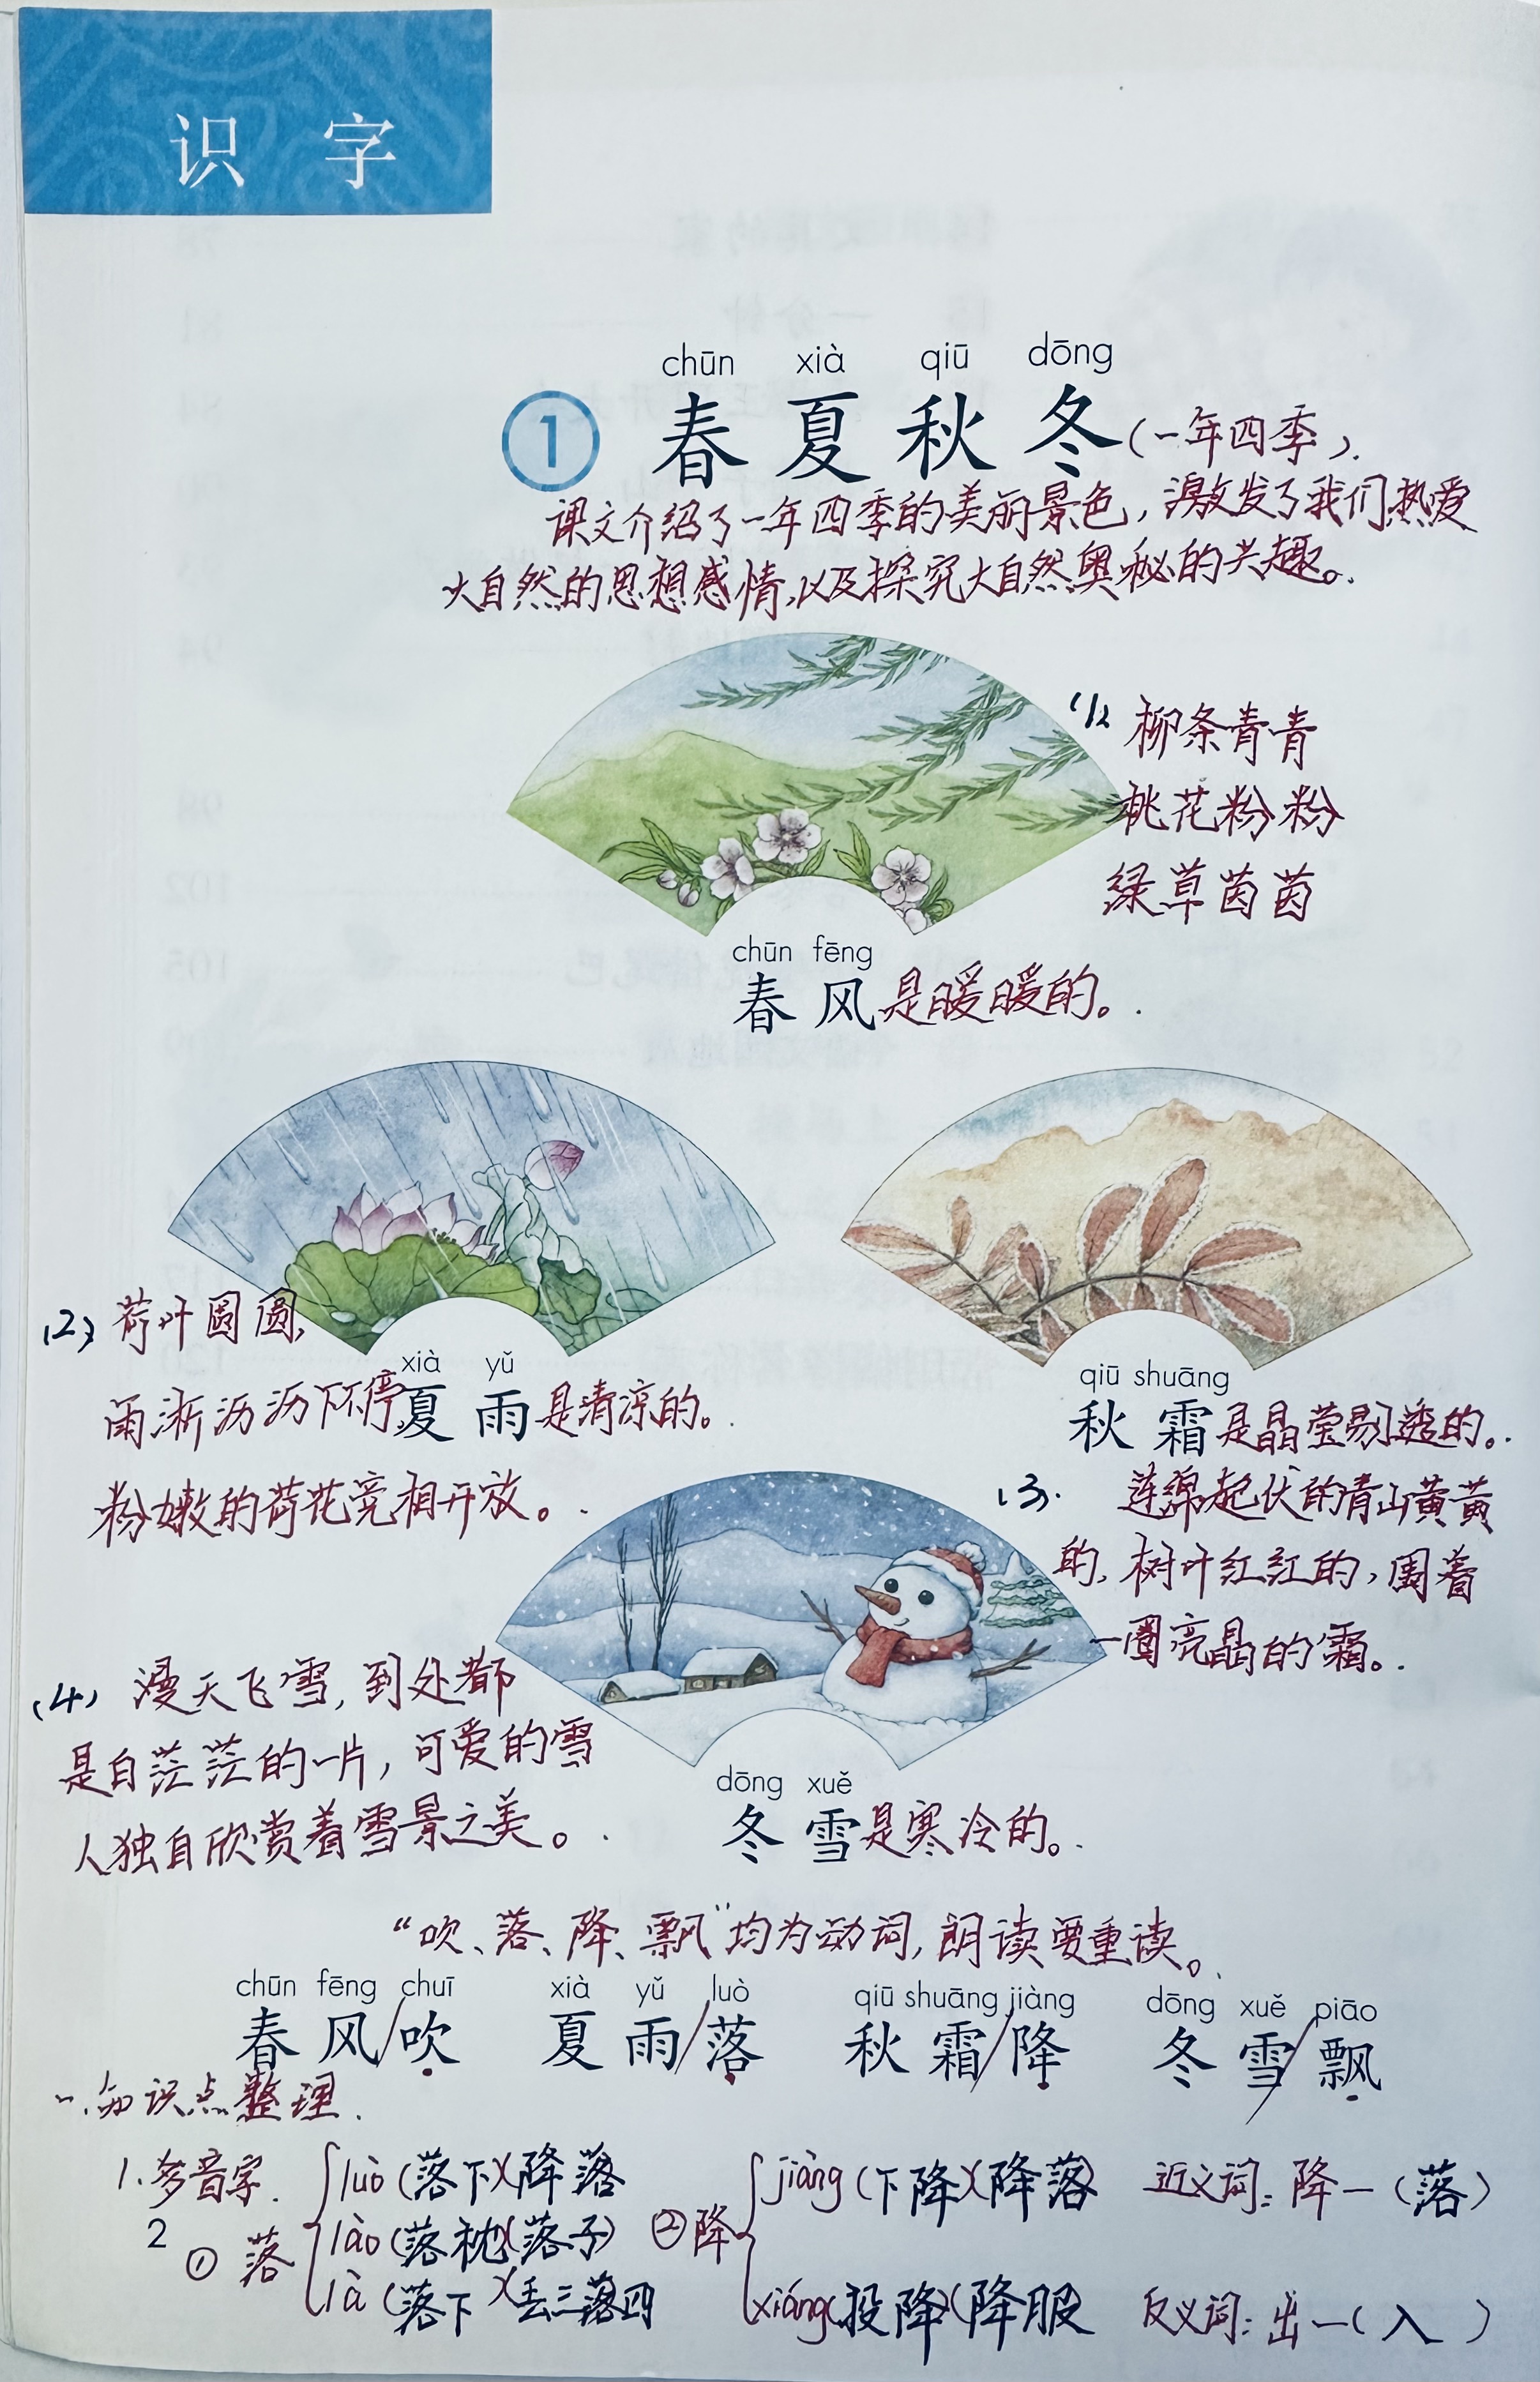 识 字
chūn xià qiū dōng
① 春 夏 秋 冬 (一年四季).
课文介绍了一年四季的美丽景色，激发了我们热爱
大自然的思想感情,以及探究大自然奥秘的兴趣。
(1) 柳条青青
桃花粉粉
绿草茵茵
chūn fēng
春 风是暖暖的。
(2) 荷叶圆圆,
雨淅沥沥下不停,
粉嫩的荷花竞相开放。
xià yǔ
夏 雨是清凉的。
qiū shuāng
秋 霜是晶莹剔透的。
(3). 连绵起伏的青山黄黄
的, 树叶红红的，围着
一圈亮晶的霜。
(4) 漫天飞雪, 到处都
是白茫茫的一片，可爱的雪
人独自欣赏着雪景之美。
dōng xuě
冬 雪是寒冷的。
“吹、落、降、飘”均为动词, 朗读要重读。
chūn fēng chuī xià yǔ luò qiū shuāng jiàng dōng xuě piāo
春 风/吹 夏 雨/落 秋 霜/降 冬 雪/飘
一.知识点整理.
1. 多音字.
2
① 落
luò (落下)(降落
lào (落枕)(落子)
là (落下)(丢三落四
② 降
jiàng (下降)(降落)
xiáng(投降)(降服
近义词: 降—（落）
反义词: 出—( 入 )